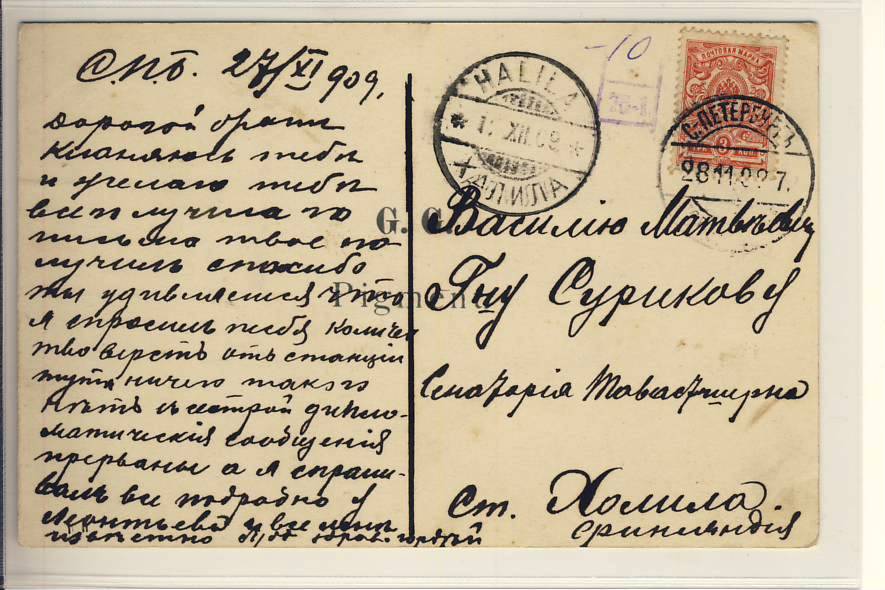 СПб. 27/XI 909.
дорогой братъ
кланяюсь тебѣ
и желаю тебѣ
всего лучшаго
письмо твое по
лучилъ спасибо
ты удивляешся что
я спросилъ тебя количес
тво верстъ отъ станціи
тутъ ничего такого
нѣтъ съ сестрой дипло-
матическія сообщенія
прерваны а я спраши-
валъ все подробно у
Леонтьева и все мнѣ
извѣстно
HALILA
1. XII.09
ХАЛИЛА
-10
ПОЧТОВАЯ МАРКА
3
С.ПЕТЕРБУРГЪ
28 11 09 7.
G. G.
Василію Матвѣевичу
Гну Сурикову
Сенаторія Тавастшерна
Pigment
ст. Холила
Финляндія